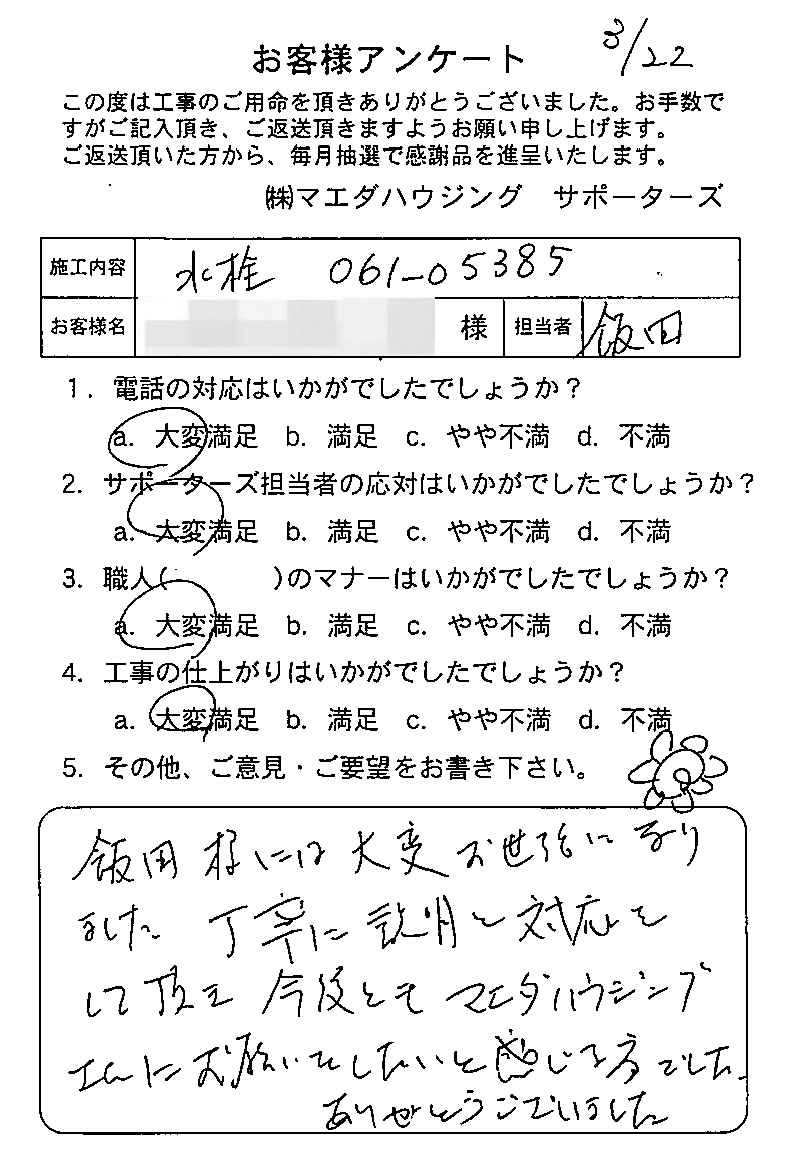 3/22
お客様アンケート
この度は工事のご用命を頂きありがとうございました。お手数で
すがご記入頂き、ご返送頂きますようお願い申し上げます。
ご返送頂いた方から、毎月抽選で感謝品を進呈いたします。
㈱マエダハウジング サポーターズ
施工内容 水栓 061-05385
お客様名 様 担当者 飯田
1. 電話の対応はいかがでしたでしょうか？
a. 大変満足 b. 満足 c. やや不満 d. 不満
2. サポーターズ担当者の応対はいかがでしたでしょうか？
a. 大変満足 b. 満足 c. やや不満 d. 不満
3. 職人( )のマナーはいかがでしたでしょうか？
a. 大変満足 b. 満足 c. やや不満 d. 不満
4. 工事の仕上がりはいかがでしたでしょうか？
a. 大変満足 b. 満足 c. やや不満 d. 不満
5. その他、ご意見・ご要望をお書き下さい。
飯田様には大変お世話になり
ました 丁寧に説明と対応を
して頂き 今後とも マエダハウジング
さんにお願いをしたいと感じる方でした。
ありがとうございました